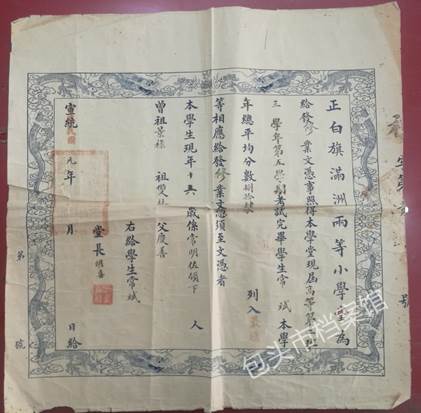 正白旗滿洲兩等小學堂為
給發修業文憑事照得本學堂現屆高等第
三學年第五學期考試完畢學生常斌本學
年總平均分數捌拾肆 列入
等相應給發修業文憑須至文憑者
本學生現年十五歲係常明佐領下 人
曾祖景祿 祖雙 父慶善
右給學生常斌
堂長
宣統元年 月 日給
第 號
號
包头市档案馆